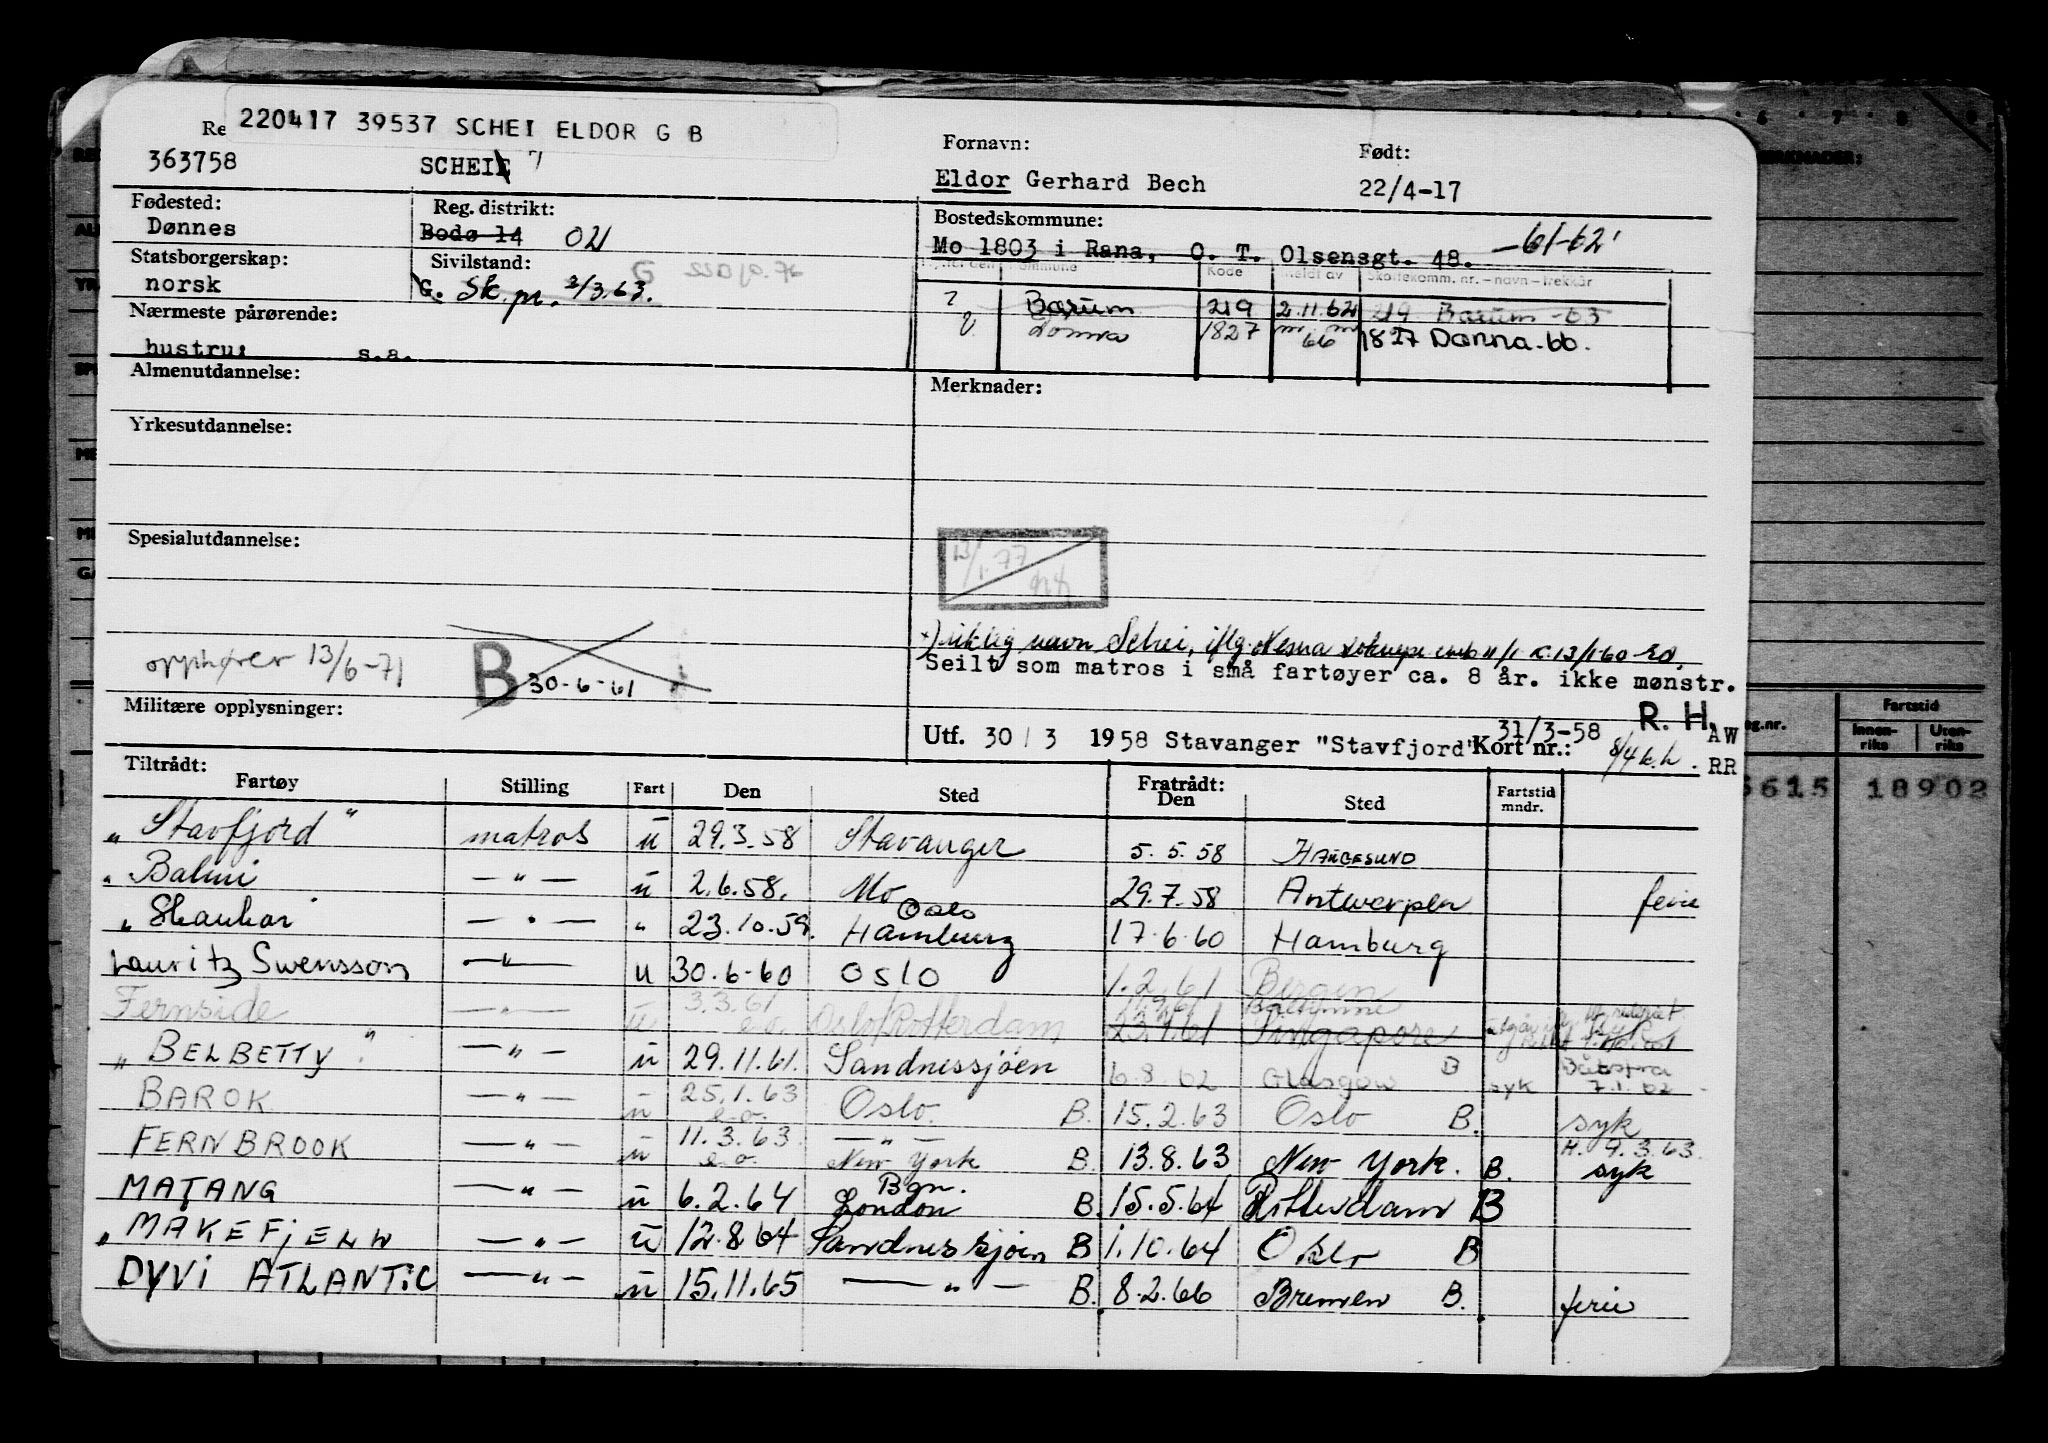 220417 39537 SCHEI ELDOR G B
Re
363758 SCHEIE
Fornavn: Født:
Eldor Gerhard Bech 22/4-17
Fødested: Reg. distrikt:
Dønnes Bodø 14 021
Bostedskommune:
Mo 1803 i Rana, O. T. Olsensgt. 48. -61-62
Statsborgerskap: Sivilstand:
norsk G. Sk. pr. 2/3.63.
Kode
Bærum 219 2.11.62 219 Bærum -63
1827 66 1827 Dønna -66.
Nærmeste pårørende:
hustru: s.a.
Almenutdannelse:
Merknader:
Yrkesutdannelse:
Spesialutdannelse:
13/1.77
opphører 13/6-71
B 30-6-61
riktig navn Schei, iflg. Nesna
Seilt som matros i små fartøyer ca. 8 år. ikke mønstr.
Militære opplysninger:
R. H. AW
Utf. 30 / 3 1958 Stavanger "Stavfjord" 31/3-58 Kort nr.: RR
Tiltrådt: Fratrådt:
Fartøy Stilling Fart Den Sted Den Sted Fartstid mndr.
"Stavfjord" matros u 29.3.58 Stavanger 5.5.58 HAUGESUND
" Balmi — " — u 2.6.58. Mo 29.7.58 Antwerpen ferie
"Skaukar" — " — " 23.10.59. Oslo Hamburg 17.6.60 Hamburg
Lauritz Swensson — " — u 30.6-60 OSLO 1.2.61 Bergen
Fernside — " — u 3.3.61 e.o. Oslo/Rotterdam 23.1.61 Singapore
"BELBETTY" — " — u 29.11.61. Sandnessjøen 6.8.62 Glasgow B syk 7.1.62
BAROK — " — u 25.1.63 e.o. Oslo. B. 15.2.63 Oslo B. syk
FERNBROOK — " — u 11.3.63. e.o. — " — New York B. 13.8.63 New York. B. H. 9.3.63. syk
MATANG — " — u 6.2.64 Bgn. London B. 15.5.64 Rotterdam B
"MAKEFJELL — " — u 12.8 64 Sandnessjøen B 1.10.64 Oslo B
DYVI ATLANTIC — " — u 15.11.65 — " — B. 8.2.66 Bremen B. ferie
Fartstid
Innenriks Utenriks
6615 18902